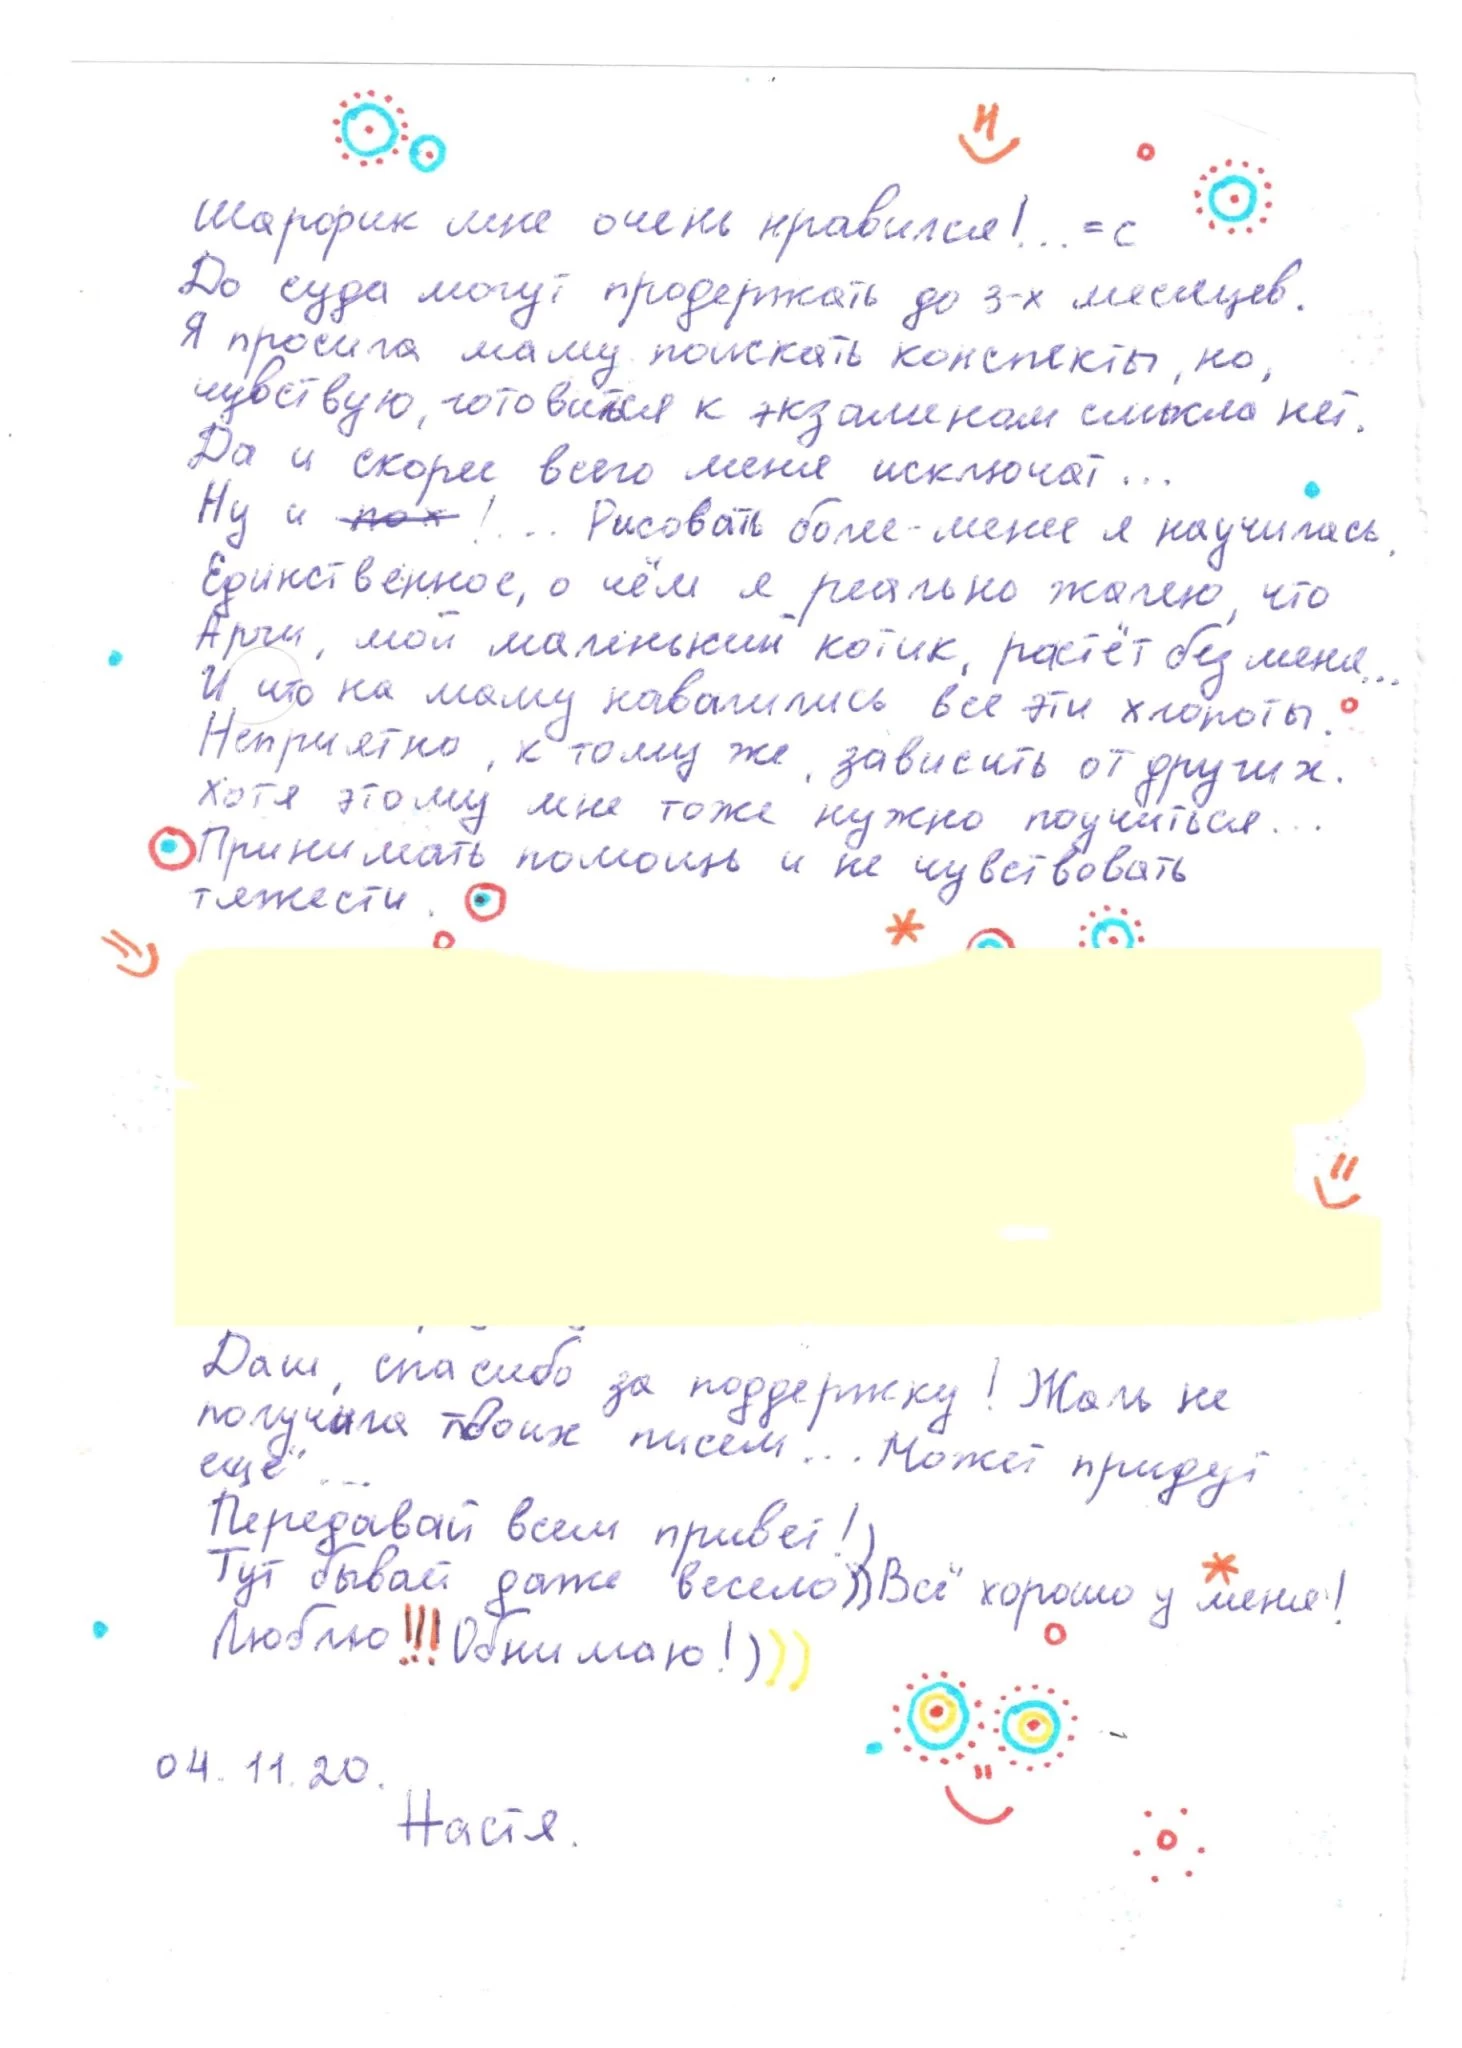 Шарфик мне очень нравился!... =с
До суда могут продержать до 3-х месяцев.
Я просила маму поискать конспекты, но,
чувствую, готовиться к экзаменам смысла нет.
Да и скорее всего меня исключат...
Ну и пох !... Рисовать более-менее я научилась.
Единственное, о чём я реально жалею, что
Арчи, мой маленький котик, растёт без меня...
И что на маму навалились все эти хлопоты.
Неприятно, к тому же, зависить от других.
Хотя этому мне тоже нужно поучиться...
Принимать помощь и не чувствовать
тяжести.
Даш, спасибо за поддержку! Жаль не
получила твоих писем... Может придут
ещё...
Передавай всем привет!)
Тут бывай даже весело)) Всё хорошо у меня!
Люблю!!! Обнимаю!)))
04.11.20.
Настя.